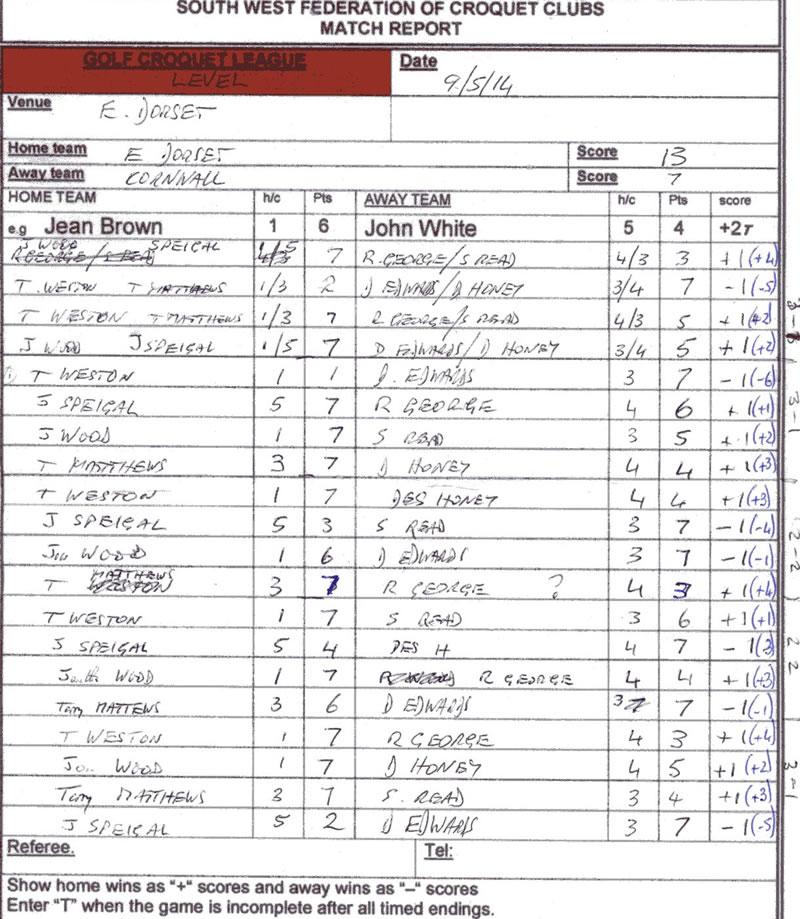 SOUTH WEST FEDERATION OF CROQUET CLUBS
MATCH REPORT
GOLF CROQUET LEAGUE
LEVEL
Date 9/5/14
Venue E. DORSET
Home team E DORSET Score 13
Away team CORNWALL Score 7
HOME TEAM h/c Pts AWAY TEAM h/c Pts score
e.g Jean Brown 1 6 John White 5 4 +2T
J WOOD SPEIGAL 1/5 7 R. GEORGE/S READ 4/3 3 +1(+4)
T. WESTON T MATTHEWS 1/3 2 D EDWARDS/D HONEY 3/4 7 -1(-5)
T WESTON T MATTHEWS 1/3 7 R GEORGE/S READ 4/3 5 +1(+2)
J WOOD J SPEIGAL 1/5 7 D EDWARDS/D HONEY 3/4 5 +1(+2)
T WESTON 1 1 D. EDWARDS 3 7 -1(-6)
J SPEIGAL 5 7 R GEORGE 4 6 +1(+1)
J WOOD 1 7 S READ 3 5 +1(+2)
T MATTHEWS 3 7 D HONEY 4 4 +1(+3)
T WESTON 1 7 DES HONEY 4 4 +1(+3)
J SPEIGAL 5 3 S READ 3 7 -1(-4)
Jon WOOD 1 6 D EDWARDS 3 7 -1(-1)
T MATTHEWS 3 7 R GEORGE ? 4 3 +1(+4)
T WESTON 1 7 S READ 3 6 +1(+1)
J SPEIGAL 5 4 DES H 4 7 -1(-3)
WOOD 1 7 R GEORGE 4 4 +1(+3)
Tony MATTEWS 3 6 D EDWARDS 3 7 -1(-1)
T WESTON 1 7 R GEORGE 4 3 +1(+4)
Jon WOOD 1 7 D HONEY 4 5 +1(+2)
Tony MATTHEWS 3 7 S. READ 3 4 +1(+3)
J SPEIGAL 5 2 D EDWARDS 3 7 -1(-5)
3-1
3-1
2-2
2 2
3-1
Referee. Tel:
Show home wins as "+" scores and away wins as "–" scores
Enter "T" when the game is incomplete after all timed endings.